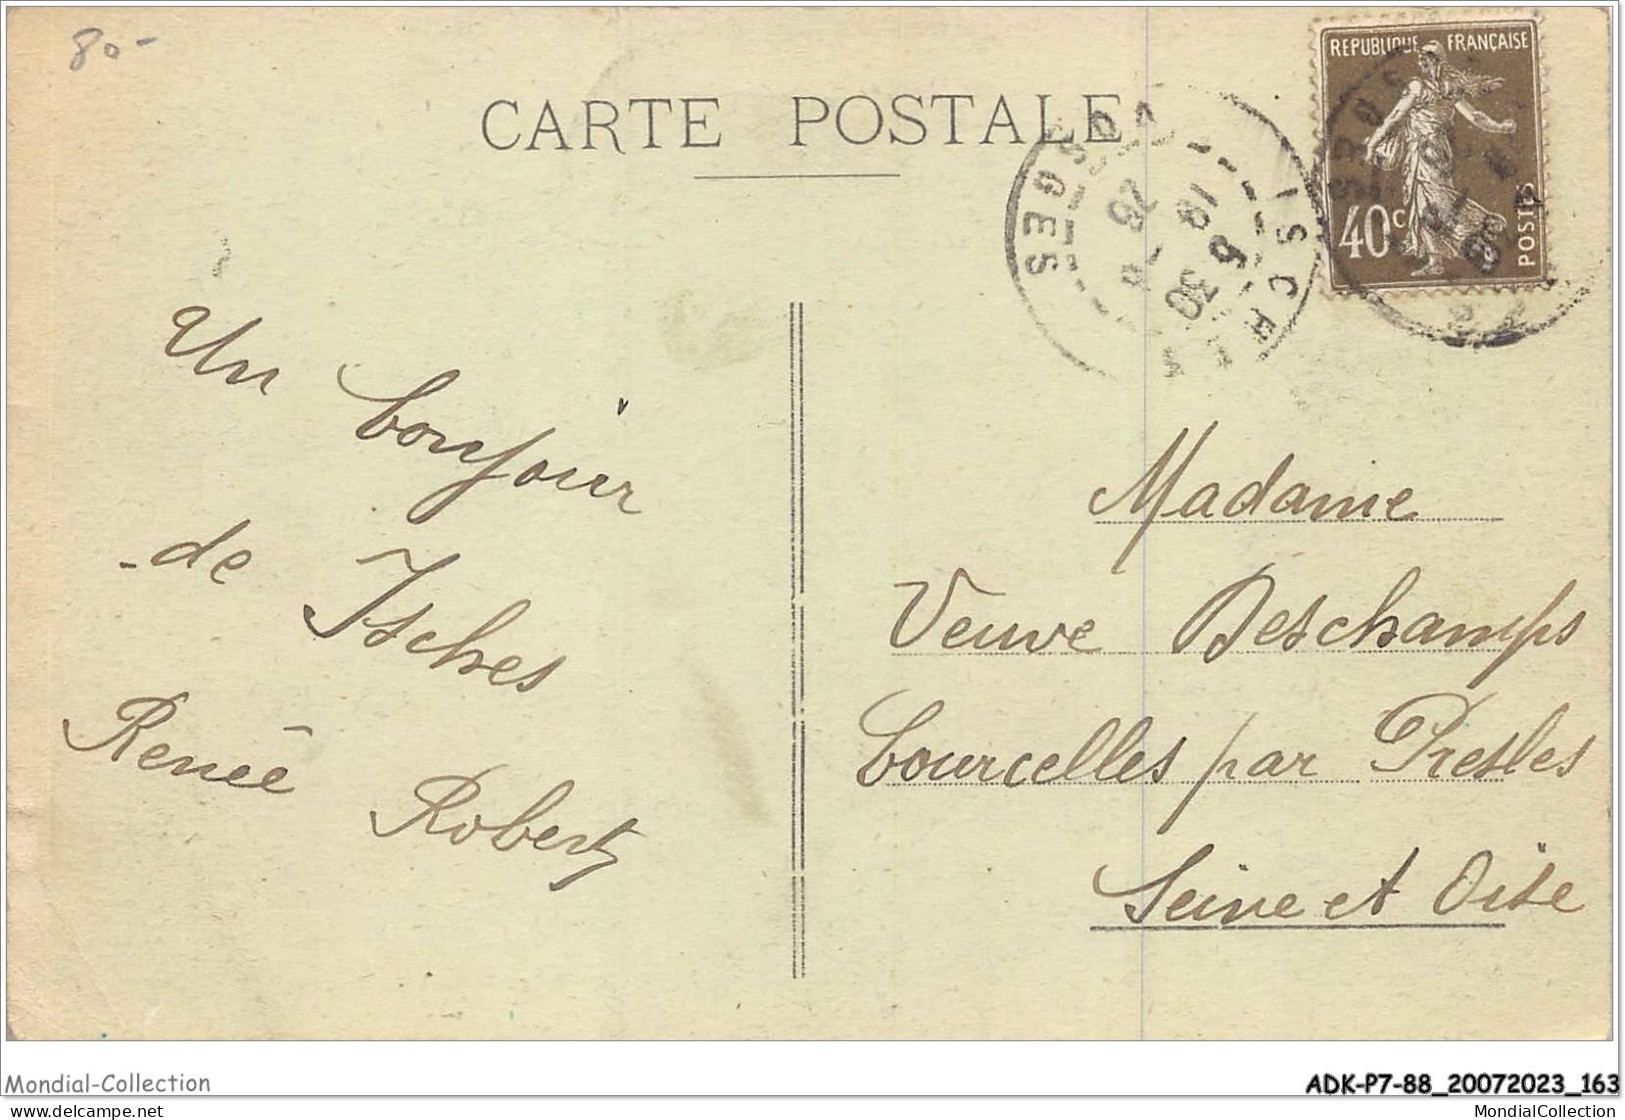 80-
CARTE POSTALE
REPUBLIQUE FRANÇAISE
40c
POSTES
VOSGES
Un bonjour
de Isches
Renée Robert
Madame
Veuve Deschamps
Courcelles par Presles
Seine et Oise
Mondial-Collection
ADK-P7-88_20072023_163
www.delcampe.net
MondialCollection